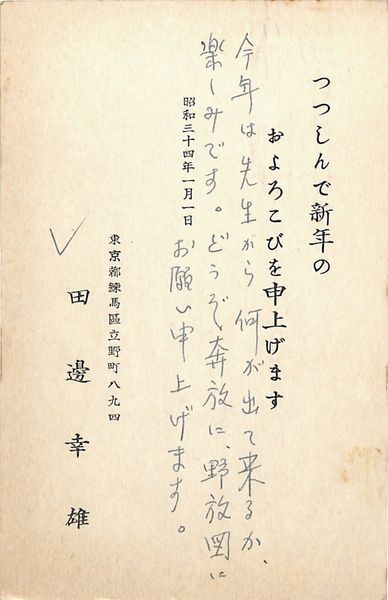 つつしんで新年の
およろこびを申上げます
今年は先生がら何が出て来るか、
楽しみです。どうぞ奔放に、野放図に
お願い申上げます。
昭和三十四年一月一日
東京都練馬區立野町八九四
田邊幸雄